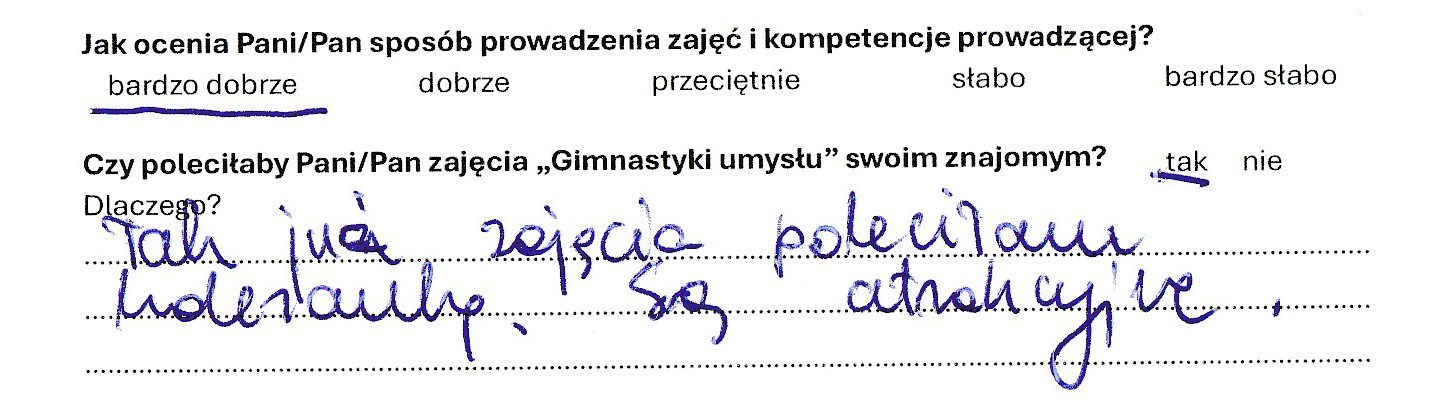 Jak ocenia Pani/Pan sposób prowadzenia zajęć i kompetencje prowadzącej?
bardzo dobrze dobrze przeciętnie słabo bardzo słabo
Czy poleciłaby Pani/Pan zajęcia „Gimnastyki umysłu” swoim znajomym? tak nie
Dlaczego?
Tak już zajęcia poleciłam
koleżankę. Są atrakcyjne.